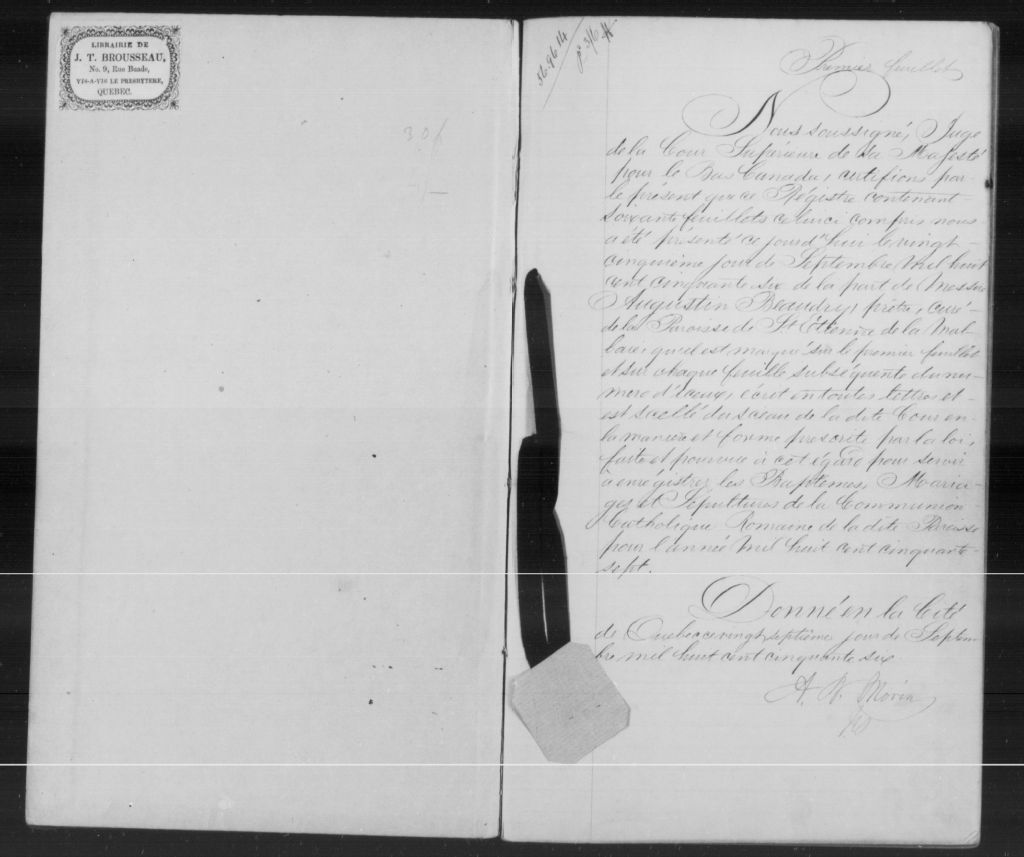 LIBRAIRIE DE
J. T. BROUSSEAU,
No. 9, Rue Buade,
VIS-A-VIS LE PRESBYTERE,
QUEBEC.
306
Premier feuillet
Nous soussigné, Juge
de la Cour Supérieure de Sa Majesté
pour le Bas Canada, certifions par
le présent que ce Régistre contenant
soixante feuillets celui ci compris nous
a été présenté ce jourd'hui le vingt
cinquième jour de Septembre Mil huit
cent cinquante six de la part de Messire
Augustin Beaudry, prêtre, curé
de la Paroisse de St Etienne de la Mal
baie, qu'il est marqué sur le premier feuillet
et sur chaque feuille subséquente du nu-
mero d'iceux, écrit en toutes lettres et
est scellé du sceau de la dite Cour en
la manière et forme prescrite par la loi,
faite et pourvue à cet égard pour servir
à enrégistrer les Baptêmes, Maria-
ges et Sépultures de la Communion
Catholique Romaine de la dite Paroisse
pour l'année Mil huit cent cinquante
sept.
Donné en la Cité
de Québec ce vingt septième jour de Septem
bre mil huit cent cinquante six.
A. N. Morin